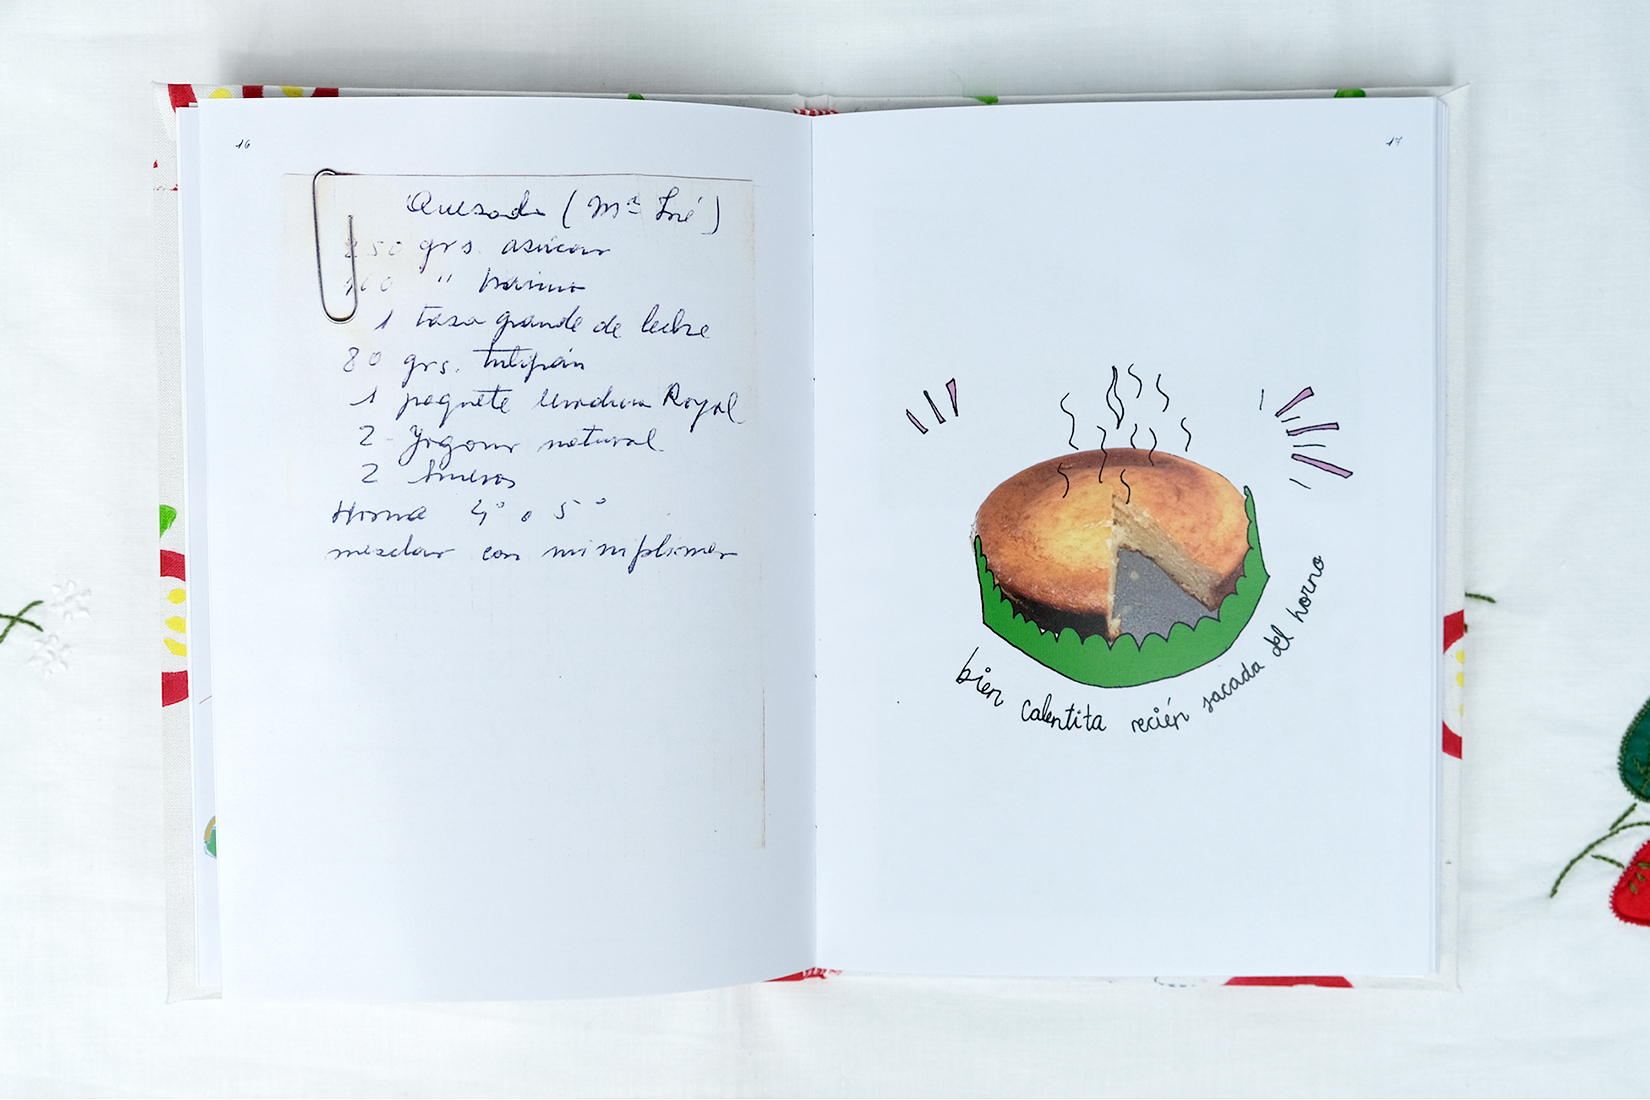 16
Quesada (Mª José)
250 grs. azúcar
100 " harina
1 taza grande de leche
80 grs. tulipán
1 paquete levadura Royal
2 Yogour natural
2 huevos
Horno 4° o 5°
mezclar con minipimer
17
bien calentita recién sacada del horno